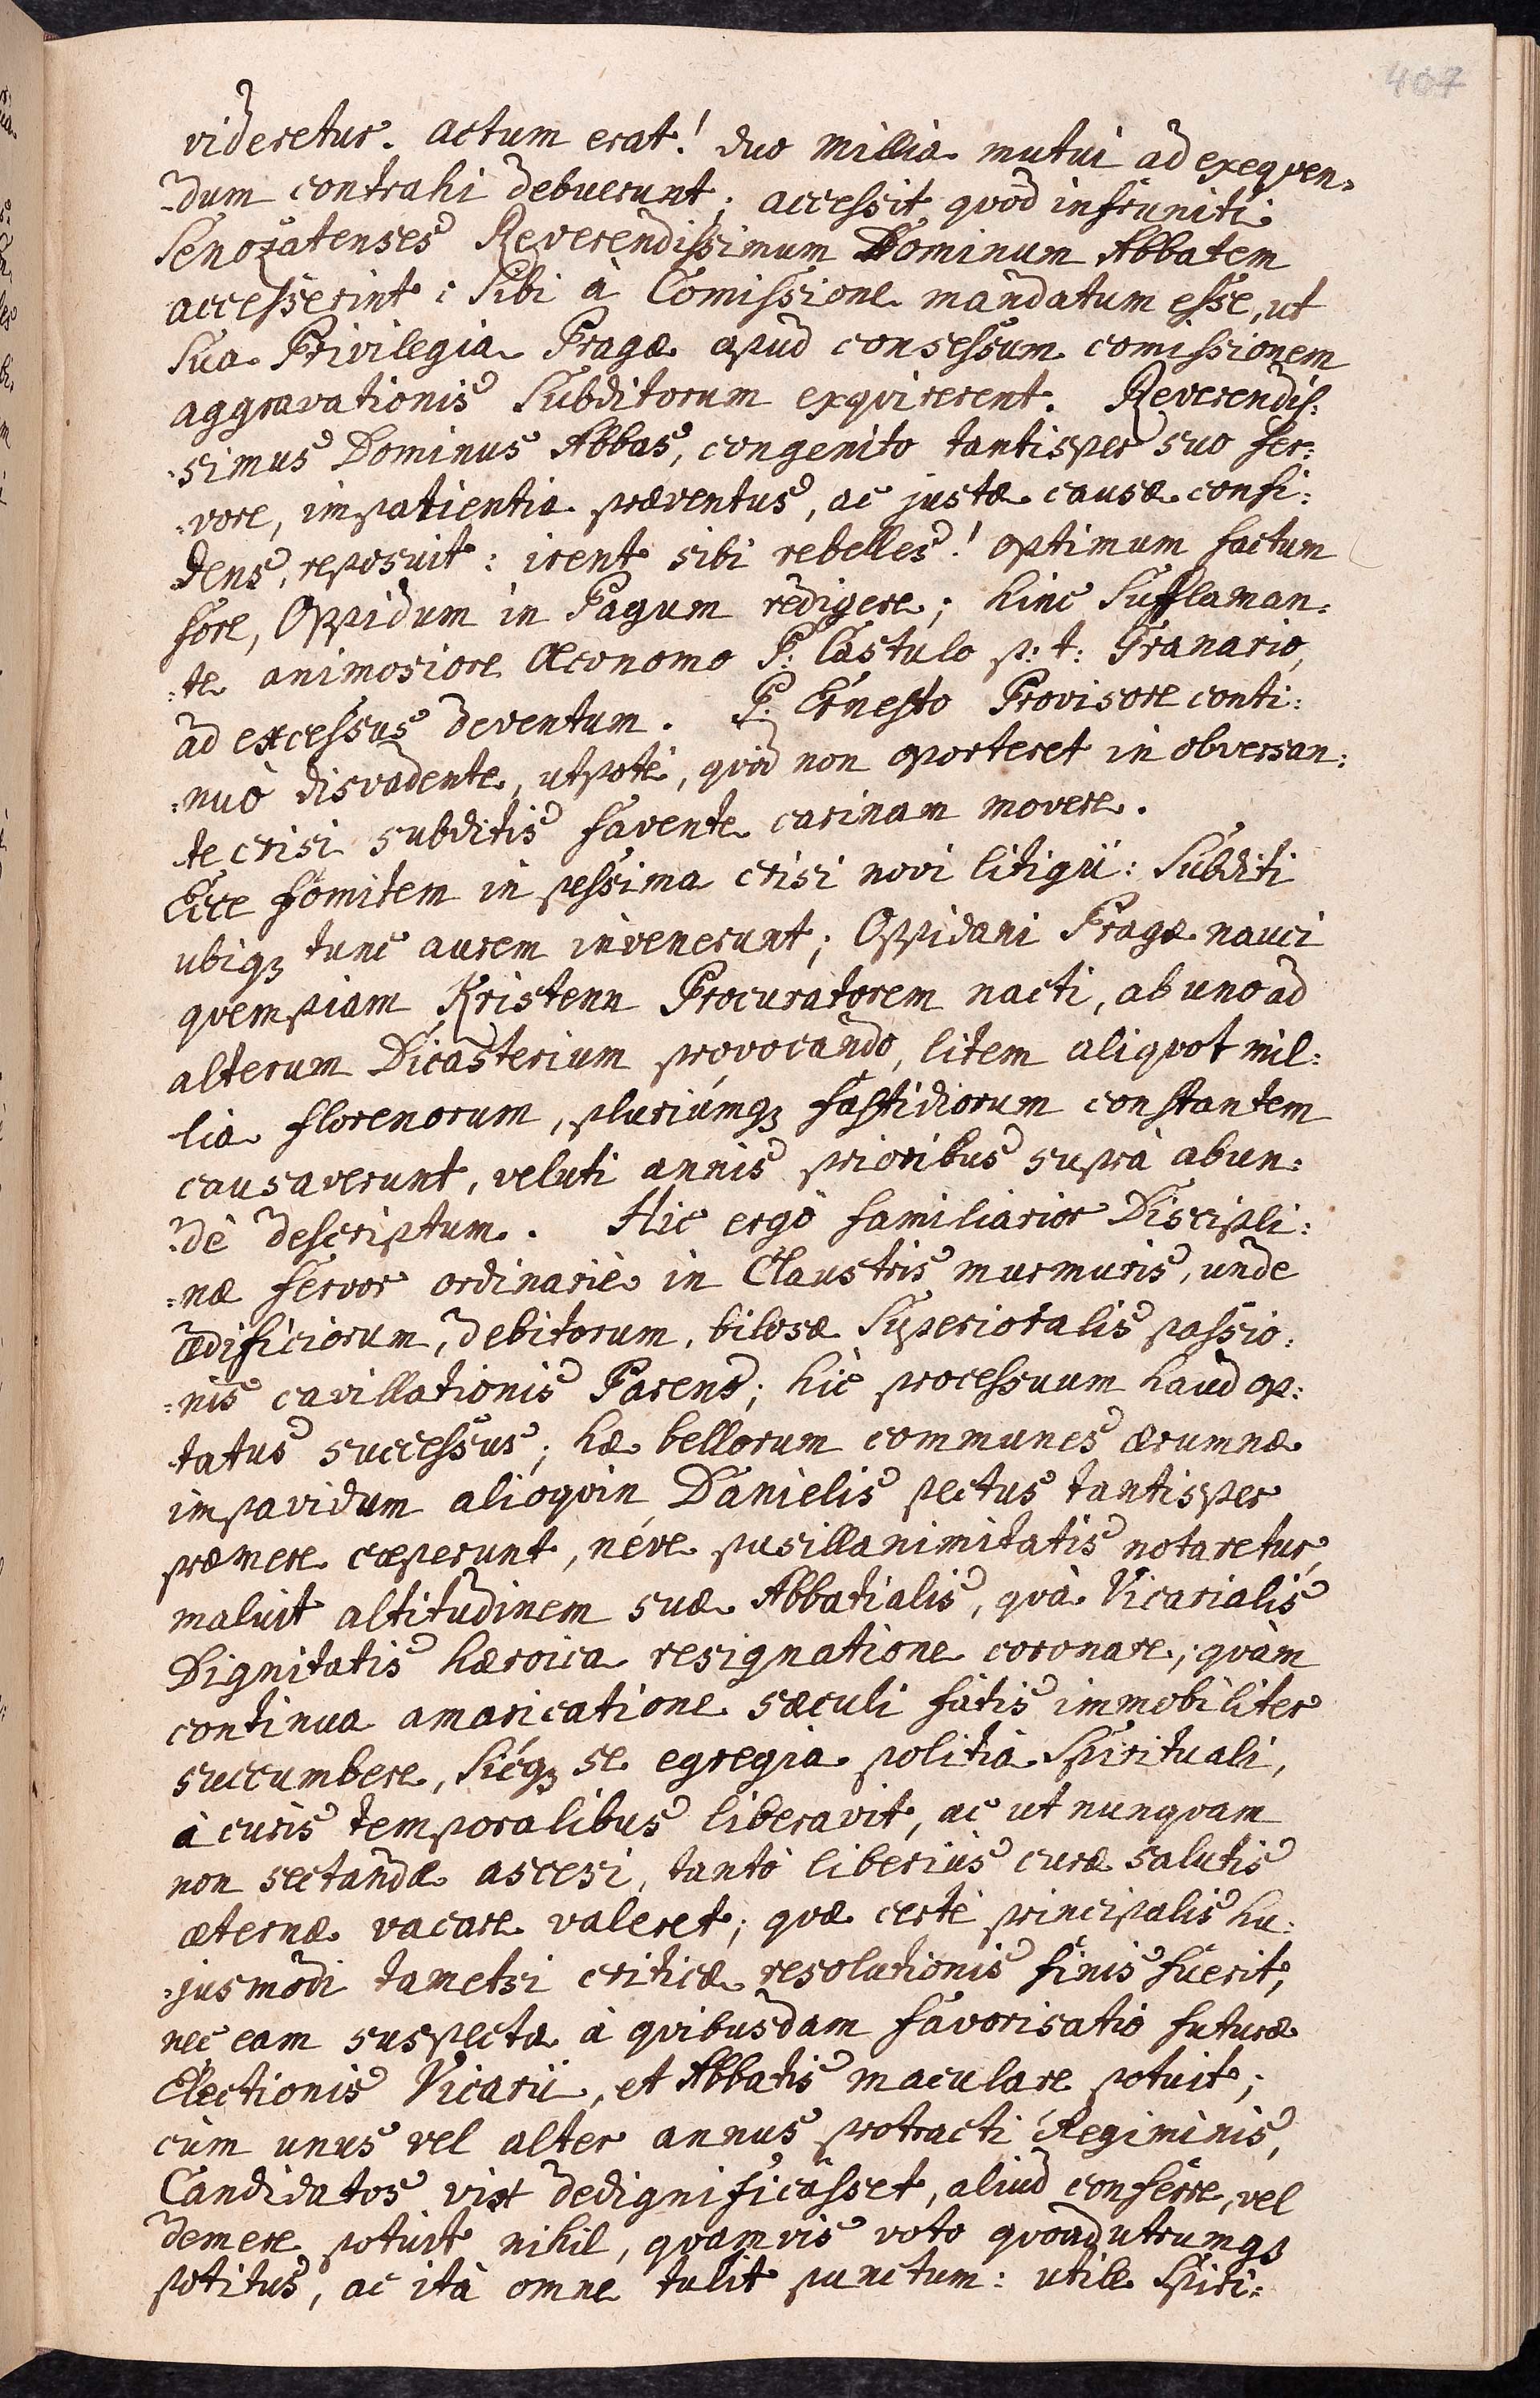 407
videretur. actum erat! duo millia mutui ad exequen=
=dum contrahi debuerunt; accessit quod infruniti
Senozatenses Reverendissimum Dominum Abbatem
accesserint: sibi à Comissione mandatum esse, ut
sua Privilegia Pragæ apud consessum comissionem
aggravationis Subditorum exquirerent. Reverendis=
=simus Dominus Abbas, congenito tantisper suo fer=
=vore, impatientia præventus, ac justæ causæ confi=
dens, reposuit: irent sibi rebelles! optimum factum
fore, Oppidum in Pagum redigere; hinc Sufflaman=
=te animosiore Œconomo P: Castulo p: t: Granario,
ad excessus deventum. P. Ernesto Provisore conti=
=nuò disvadente, utpotè, quòd non oporteret in obversan=
te crisi subditis favente carinam movere.
Ecce fomitem in pessima crisi novi litigii: Subditi
ubiqz tunc aurem invenerunt; Oppidani Pragæ nauci
quempiam Kristenn Procuratorem nacti, ab uno ad
alterum Dicasterium provocando, litem aliquot mil=
lia florenorum, pluriúmqz fastidiorum constantem
causaverunt, veluti annis prioribus suprà abun=
=dè descriptum. Hic ergò familiarior Discipli=
=næ fervor ordinariè in Claustris murmuris, unde
ædificiorum, debitorum, bilosæ Superioralis passio=
=nis cavillationis Parens; hic processuum haud op=
tatus successus; hæ bellorum communes ærumnæ
impavidum alioquin Danielis pectus tantisper
præmere cæperunt, néve pusillanimitatis notaretur,
maluit altitudinem suæ Abbatialis, quà Vicarialis
Dignitatis hæroica resignatione coronare; quàm
continua amaricatione sæculi fatis immobiliter
succumbere, Sicqz se egregia politia Spirituali,
à curis temporalibus liberavit, ac ut nunquam
non sectandæ ascesi, tantò liberius curæ salutis
æternæ vacare valeret; quæ certè principalis hu=
=jusmodi tametsi criticæ resolutionis finis fuerit,
nec eam suspecta à quibusdam favorisatio futuræ
Electionis Vicarii, et Abbatis maculare potuit;
cùm unus vel alter annus protracti Regiminis,
Candidatos vix dedignificasset, aliud conferre, vel
demere potuit nihil, quamvis voto quoad utrumqz
potitus, ac ità omne tulit punctum: utile Spiri=